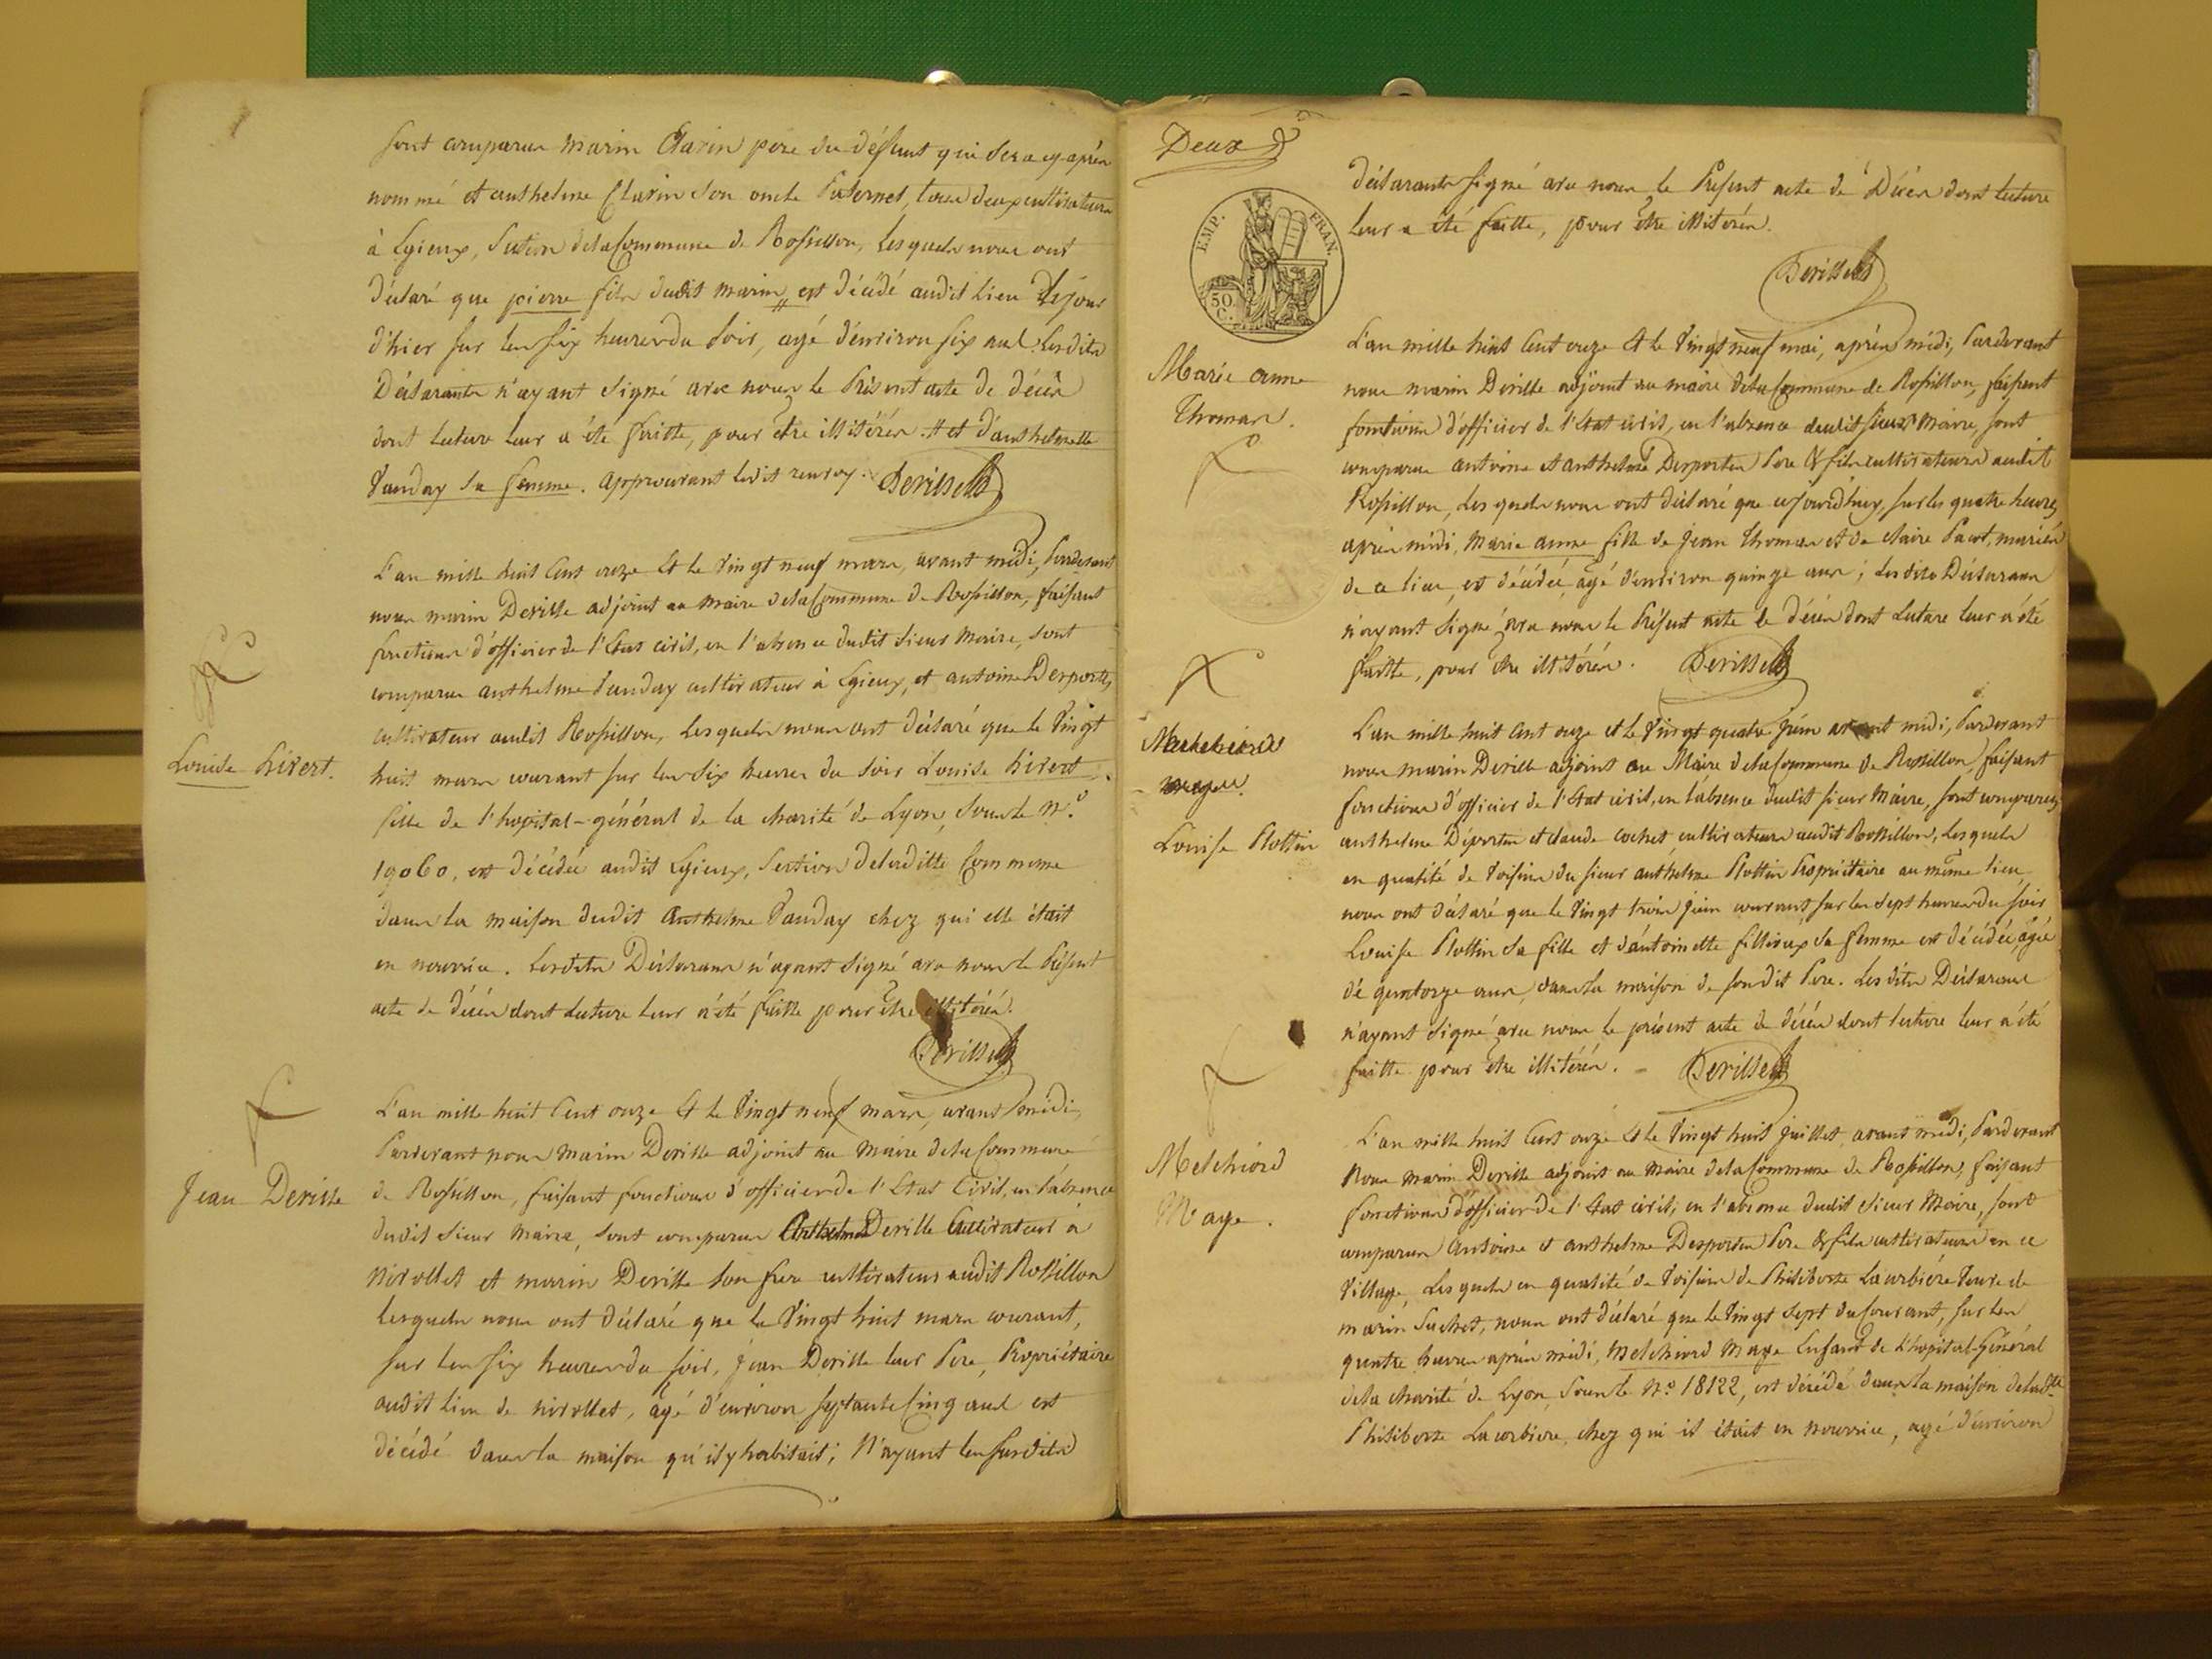 sont comparu marin Clarin pere du défunt qui sera cy après
nommé et anthelme Clarin son oncle Paternel, tous deux cultivateurs
à Egieux, Section de la Commune de Rossillon, lesquels nous ont
déclaré que pierre fils dudit marin # est décédé audit lieu le jour
d'hier sur les six heures du soir, agé d'environ six ans. Lesdits
Déclarants n'ayant signé avec nous le Présent acte de décès
dont lecture leur a été faitte, pour être illitérés. # et d'anthelmette
Vanday sa femme. approuvant ledit renvoy. Deville
L'an mille huit Cent onze & le Vingt neuf mars, avant midi, Pardevant
nous marin Deville adjoint au maire de la Commune de Rossillon, faisant
fonctions d'officier de l'Etat civil, en l'absence dudit sieur Maire, sont
comparus anthelme Vanday cultivateur à Egieux, et antoine Desportes
cultivateur audit Rossillon, lesquels nous ont déclaré que le Vingt
huit mars courant sur les six heures du soir Louise hivert
Louise hivert.
fille de l'hopital-général de la charité de Lyon, sous le N.o
19060, est décédée audit Egieux, Section de laditte Commune
dans la maison dudit Anthelme Vanday chez qui elle était
en nourrice. Lesdits Déclarans n'ayant signé avec nous le Présent
acte de décès dont lecture leur a été faitte pour être illitérés.
Deville
L'an mille huit Cent onze & le Vingt neuf mars, avant midi,
Pardevant nous Marin Deville adjoint au Maire de la Commune
Jean Deville
de Rossillon, faisant fonctions d'officier de l'Etat Civil, en l'absence
dudit sieur Maire, sont comparus Anthelme Deville Cultivateur à
Nivollet et marin Deville son frere cultivateur audit Rossillon
lesquels nous ont déclaré que le Vingt huit mars courant,
sur les six heures du soir, Jean Deville leur Pere, Propriétaire
audit lieu de nivollet, agé d'environ septante cinq ans est
décédé dans la maison qu'il y habitait; N'ayant les susdits
Deux
déclarants signé avec nous le Présent acte de Décès dont lecture
leur a été faitte, pour être illitérés.
EMP. FRAN.
50 C.
Deville
Marie anne
Thomas.
L'an mille huit Cent onze & le Vingt neuf mai, après midi, Pardevant
nous marin Deville adjoint au maire de la Commune de Rossillon, faisant
fonctions d'officier de l'Etat civil, en l'absence dudit sieur Maire, sont
comparus antoine et anthelme Desportes Pere & fils cultivateurs audit
Rossillon, lesquels nous ont déclaré que cejourd'huy, sur les quatre heures
après midi, Marie anne fille de Jean Thomas et de claire Pacot, mariés
de ce lieu, est décédée, agé d'environ quinze ans; lesdits Déclarans
n'ayant signé avec nous le Présent acte de décès dont lecture leur a été
faitte, pour être illitérés. Deville
L'an mille huit Cent onze et le Vingt quatre Juin avant midi, Pardevant
nous marin Deville adjoint au Maire de la Commune de Rossillon, faisant
fonctions d'officier de l'Etat civil, en l'absence dudit sieur Maire, sont comparus
Louise Plottin
anthelme Déportes et claude cochet cultivateurs audit Rossillon, lesquels
en qualité de Voisins du sieur anthelme Plottin Propriétaire au même lieu,
nous ont déclaré que le Vingt trois Juin courant, sur les sept heures du soir
Louise Plottin sa fille et d'antoinette fillioux sa femme est décédée, agée
de quatorze ans, dans la maison de sondit Pere. Lesdits Déclarans
n'ayant signé avec nous le présent acte de décès dont lecture leur a été
faitte pour être illitérés. - Deville
Melchiord
Maye.
L'an mille huit Cent onze & le Vingt huit Juillet, avant midi, Pardevant
Nous Marin Deville adjoint au Maire de la Commune de Rossillon, faisant
fonctions d'officier de l'Etat civil, en l'absence dudit sieur Maire, sont
comparus Antoine et anthelme Desportes Pere & fils cultivateurs en ce
Village, Lesquels en qualité de Voisins de Philiberte Lacorbiére Veuve de
marin Suchet, nous ont déclaré que le Vingt sept du Courant, sur les
quatre heures après midi, Melchiord Maye Enfant de l'hopital-Général
de la charité de Lyon, Sous le N.o 18122, est décédé dans la maison de lad.te
Philiberte Lacorbiere, chez qui il était en nourrice, agé d'environ